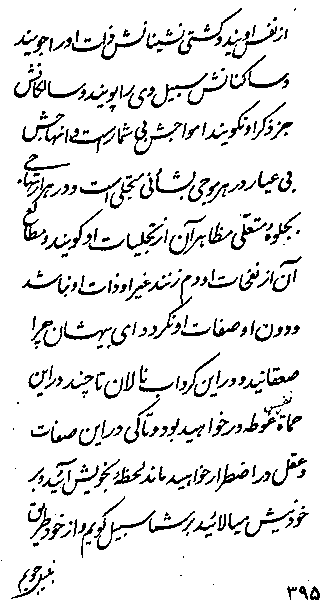 از نفس اویند و کشتی نشینانش ذات او را جویند
و ساکنانش سبیل وی را پویند و سالکانش
جز ذکر او نگویند امواجش بی شمار است و انهاجش
بی عیار در هر موجی بشأنی متجلی است و در هر انتهاجی
بجلوه متعلی مظاهر آن از تجلیات او گویند و مطالع
آن از نفحات او دم زنند غیر او ذات او نباشد
و دون او صفات او نگردد ای بیهشان چرا
صعقانید و در این گرداب نالان تا چند در این
حماة نفسیه غوطه در خواهید بود و تا کی در این صفات
و عقل در اضطرار خواهید ماند لحظهٔ بخویش آئید و بر
خود نیش میالائید بر شما سبیل گویم و از خود طریق
بغیر جویم
۳۹۵